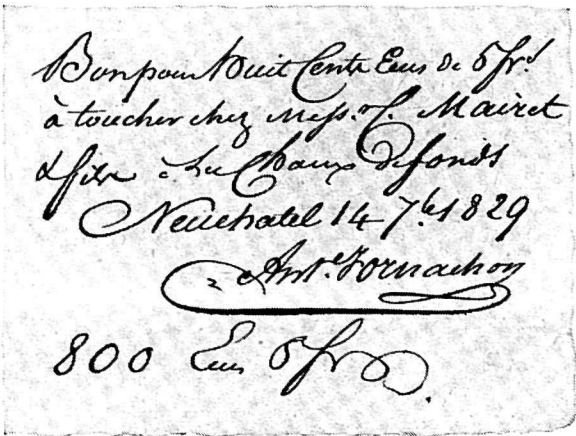 Bon pour huit Cents Ecus de 5 frs
à toucher chez Mess.rs C. Mairet
& fils à La Chaux de fonds
Neuchatel 14 7bre 1829
Ant.e Fornachon
800 Ecus 5 frs